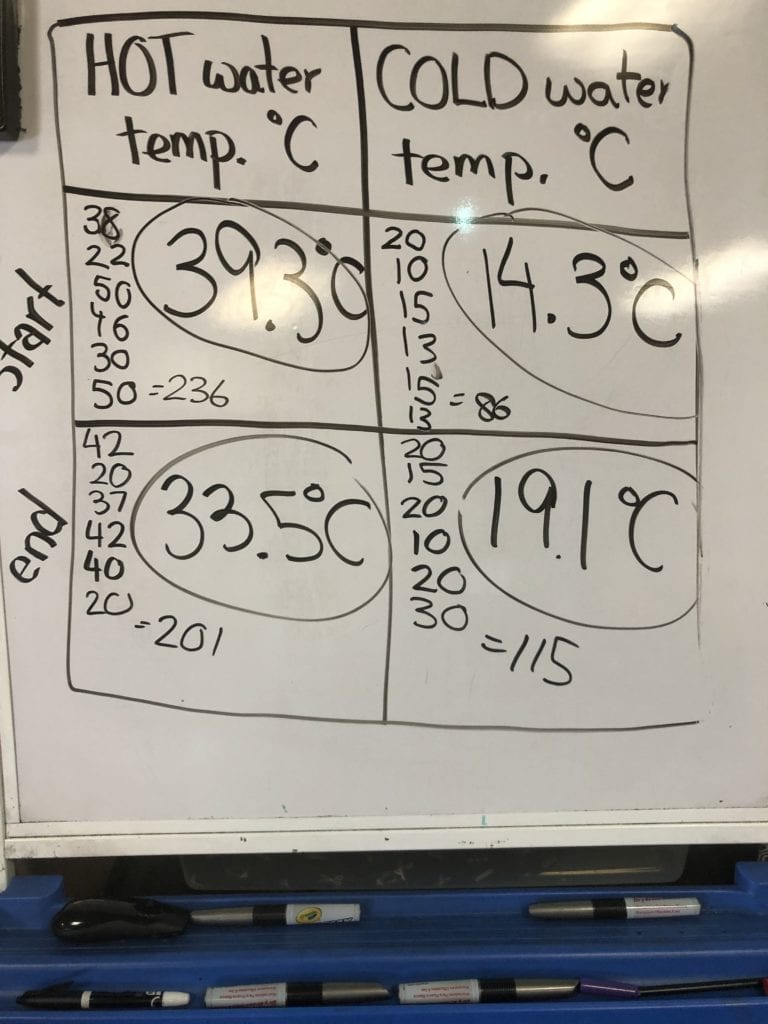 HOT water
temp. °C
COLD water
temp. °C
start
38
22
50
46
30
50 =236
39.3°C
20
10
15
13
15
13 = 86
14.3°C
end
42
20
37
42
40
20
=201
33.5°C
20
15
20
10
20
30
=115
19.1°C